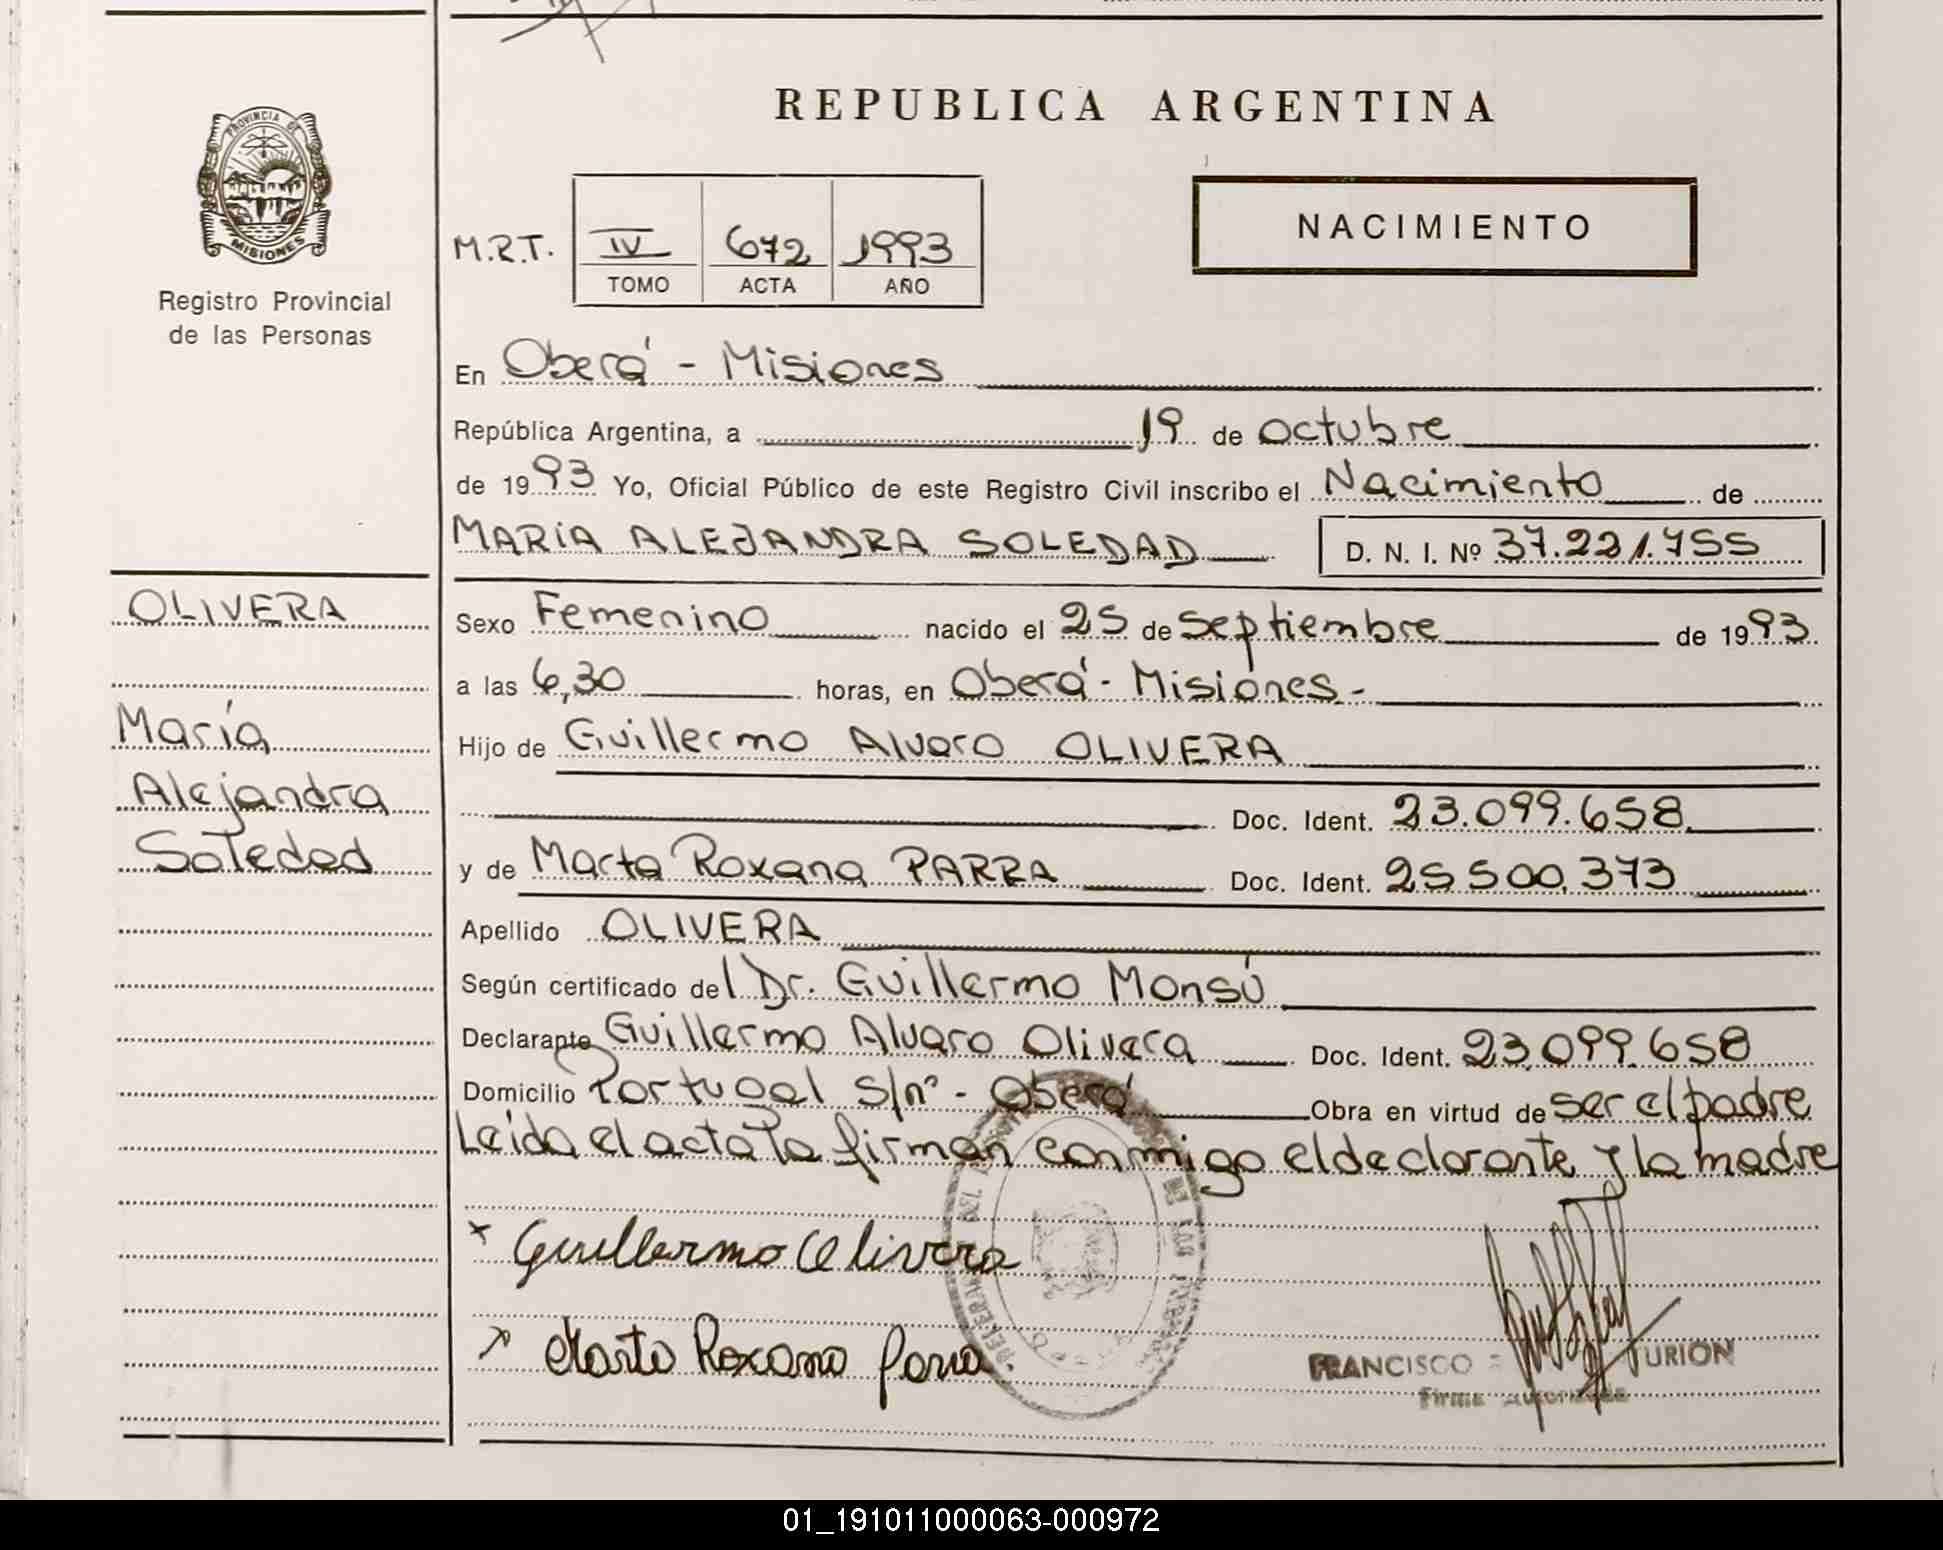 REPUBLICA ARGENTINA
PROVINCIA DE
MISIONES
Registro Provincial
de las Personas
NACIMIENTO
M.R.T. IV 672 1993
TOMO ACTA AÑO
En Oberá - Misiones
República Argentina, a 19 de octubre
de 1993 Yo, Oficial Público de este Registro Civil inscribo el Nacimiento de
MARIA ALEJANDRA SOLEDAD D. N. I. Nº 37.221.755
OLIVERA
María
Alejandra
Soledad
Sexo Femenino nacido el 25 de septiembre de 1993
a las 6,30 horas, en Oberá - Misiones.-
Hijo de Guillermo Alvaro OLIVERA
Doc. Ident. 23.099.658
y de Marta Roxana PARRA Doc. Ident. 25.500.373
Apellido OLIVERA
Según certificado del Dr. Guillermo Monsú
Declarante Guillermo Alvaro Olivera Doc. Ident. 23.099.658
Domicilio Portugal s/nº - Oberá Obra en virtud de ser el padre
Leída el acta la firman conmigo el declarante y la madre
x Guillermo Olivera
x Marta Roxana Parra.
FRANCISCO TURION
Firma
01_191011000063-000972